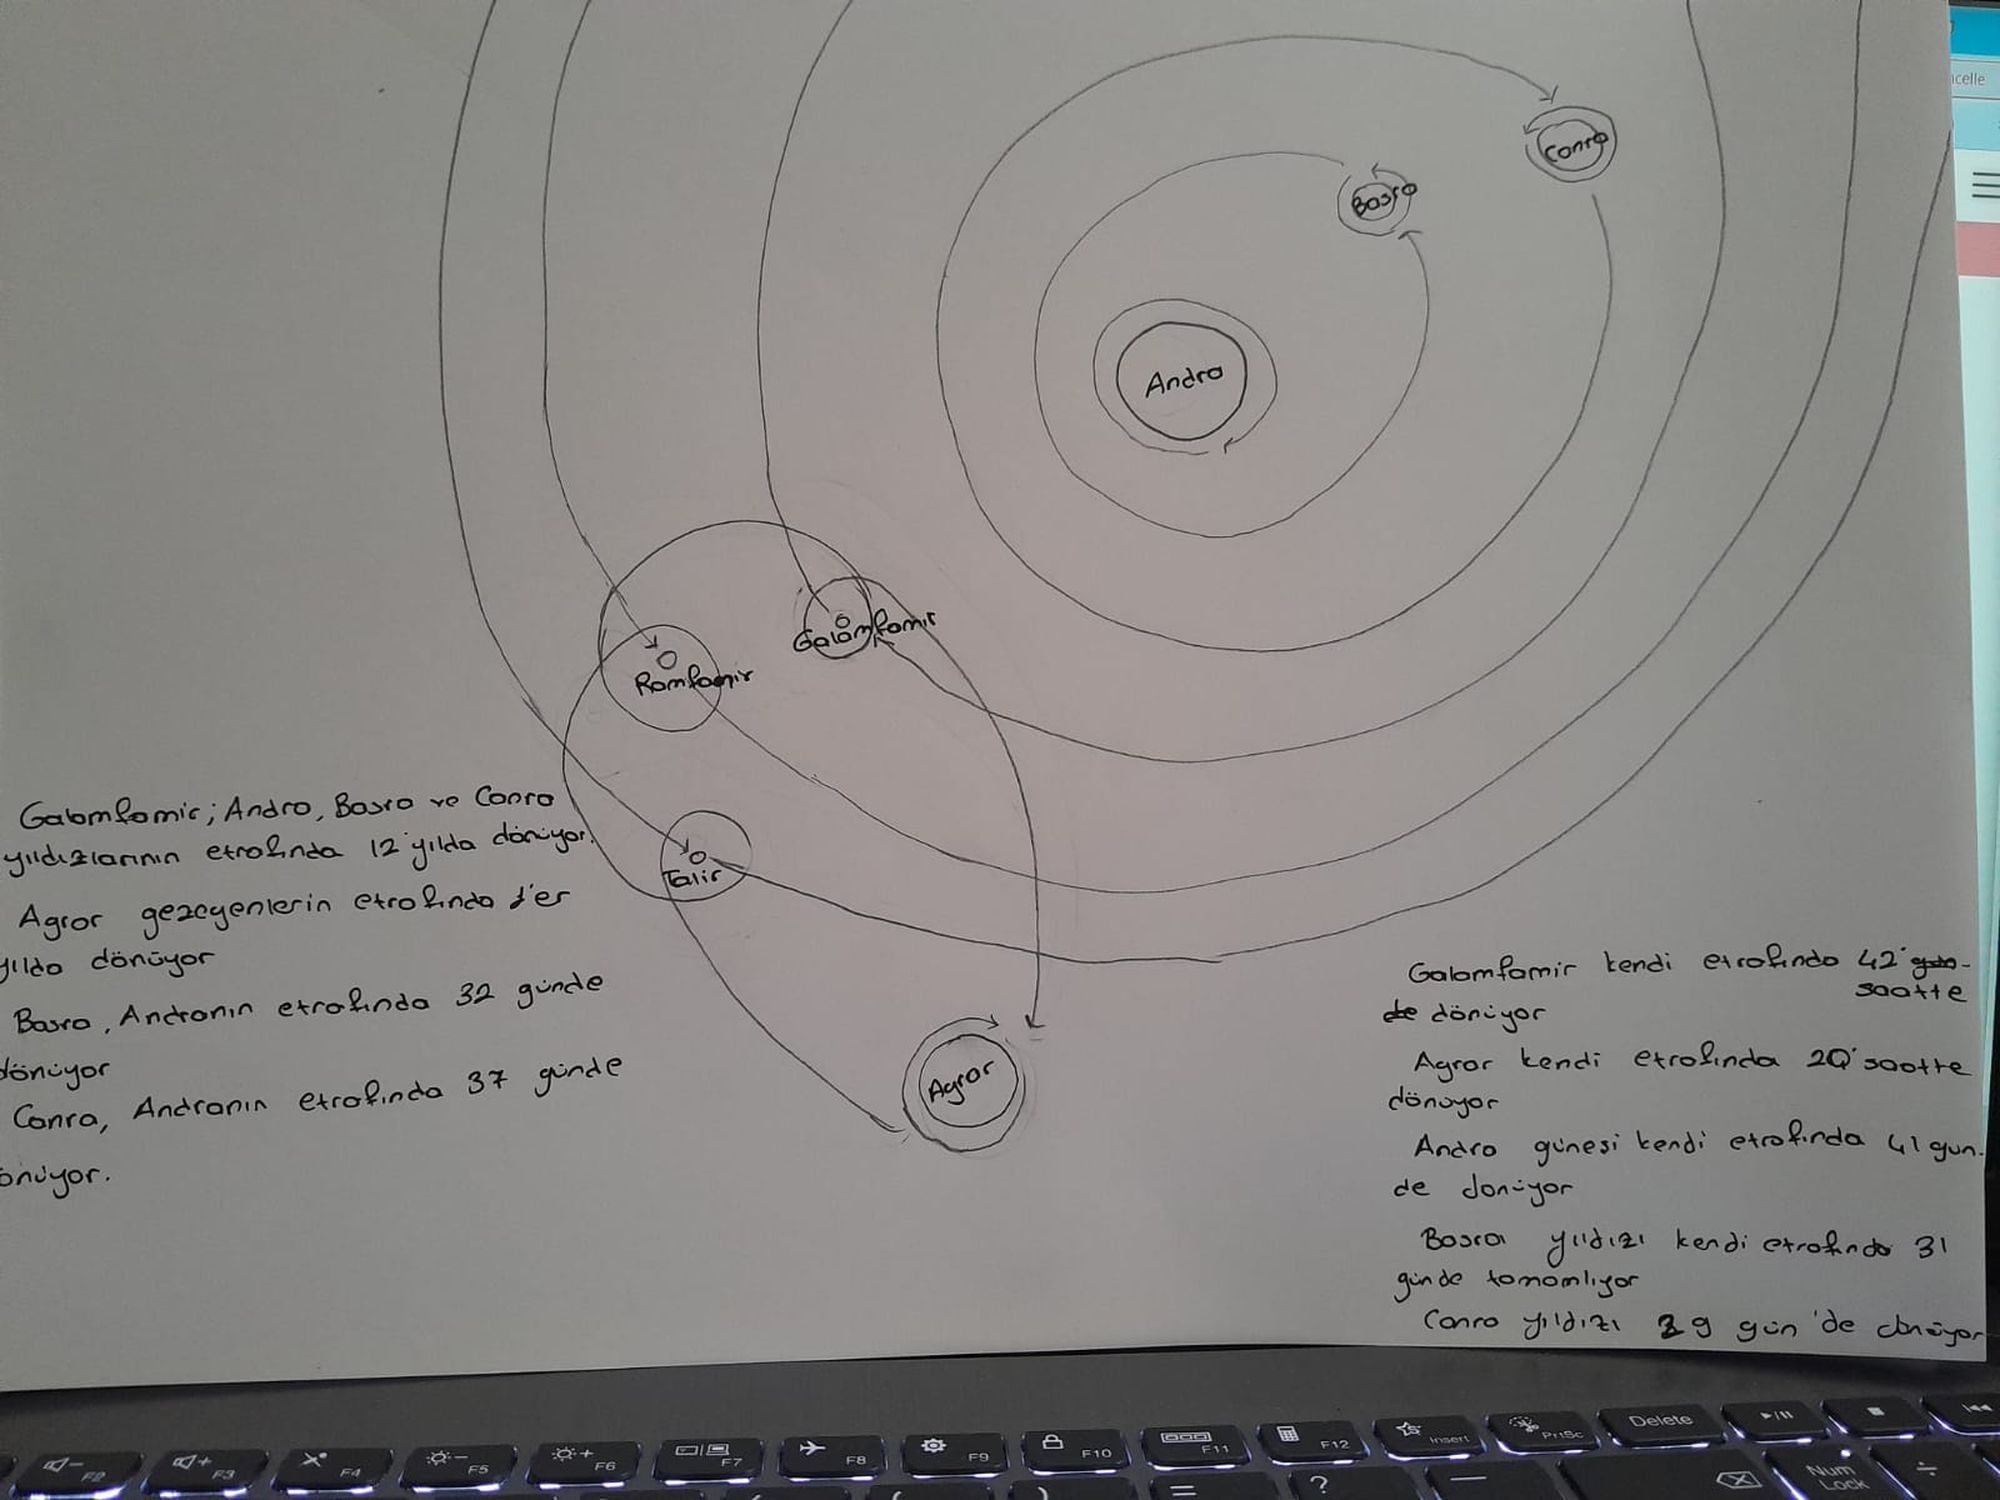 Conra
Basra
Andra
Galamfamir
Ramfamir
Talir
Agror
Galamfamir; Andra, Basra ve Conra
yıldızlarının etrafında 12 yılda dönüyor.
Agror gezegenlerin etrafında 1'er
yılda dönüyor
Basra, Andranın etrafında 32 günde
dönüyor
Conra, Andranın etrafında 37 günde
önüyor.
Galamfamir kendi etrafında 42
saatte
dönüyor
Agror kendi etrafında 20 saatte
dönüyor
Andra güneşi kendi etrafında 41 gün-
de dönüyor
Basra yıldızı kendi etrafında 31
günde tamamlıyor
Conra yıldızı 29 gün'de dönüyor
celle
F2 F3 F4 F5 F6 F7 F8 F9 F10 F11 F12 Insert PrtSc Delete
) = ? Num
Lock